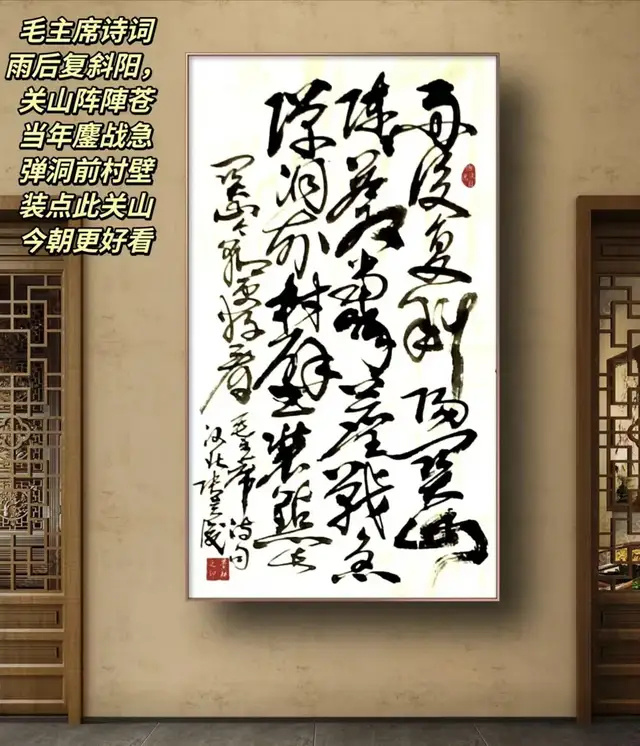 毛主席诗词
雨后复斜阳，
关山阵陣苍
当年鏖战急
弹洞前村壁
装点此关山
今朝更好看
雨後复斜陽関山
陣々苍當年鏖戰急
弹洞前村壁装點此
関山今朝更好看
毛主席诗句